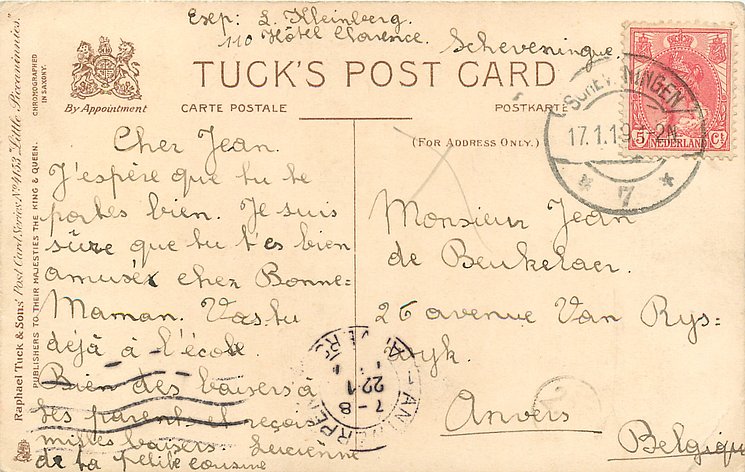 Exp: L. Kleinberg.
110 Hôtel Clarence.
Scheveningue.
TUCK'S POST CARD
By Appointment
CARTE POSTALE
POSTKARTE
(FOR ADDRESS ONLY.)
SCHEVENINGEN
17.1.19
-2N
* 7 *
5 Ct
NEDERLAND
Cher Jean.
J'espère que tu te
portes bien. Je suis
sûre que tu t'es bien
amusée cher Bonne=
Maman. Vas tu
déjà à l'école
Bien des baisers à
tes parents et reçois
milles baisers. Lucienne
de ta petite cousine
Monsieur Jean
de Beukelaer.
26 avenue Van Rys=
wyk.
Anvers
Belgique
ANTWERPEN
ANVERS
7-8
22.1
Raphael Tuck & Sons' Post Card Series Nº 4453 "Little Piccaninnies."
PUBLISHERS TO THEIR MAJESTIES THE KING & QUEEN.
CHROMOGRAPHED
IN SAXONY.